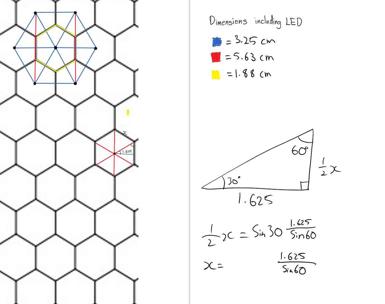 Dimensions including LED
= 3.25 cm
= 5.63 cm
= 1.88 cm
x
60°
½x
30°
1.625
½x = Sin30 1.625/Sin60
x= 1.625/Sin60